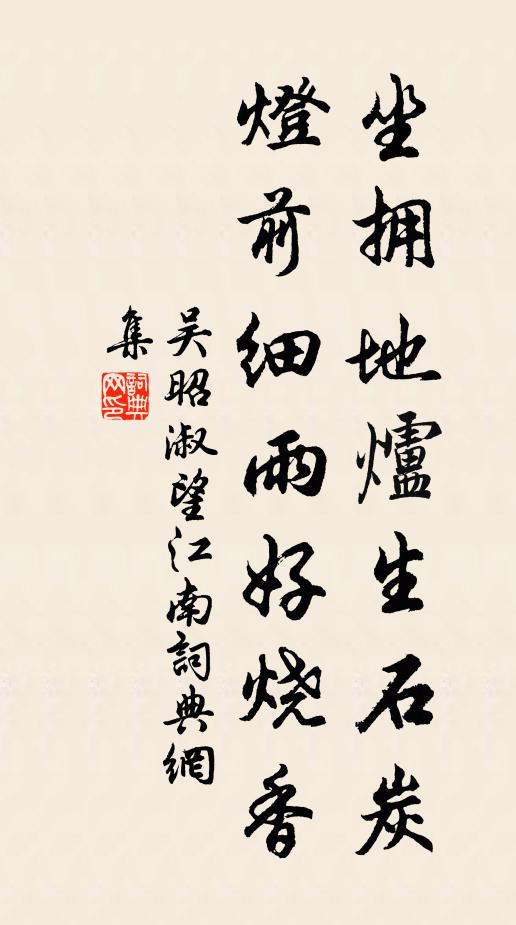 坐拥地爐生石炭
燈前細雨好烧香
吴昭淑望江南詞典網
集
詞典
网印